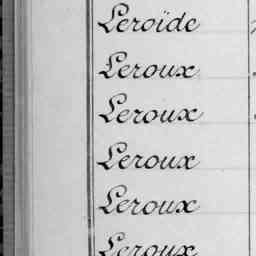 Leroïde
Leroux
Leroux
Leroux
Leroux
Leroux